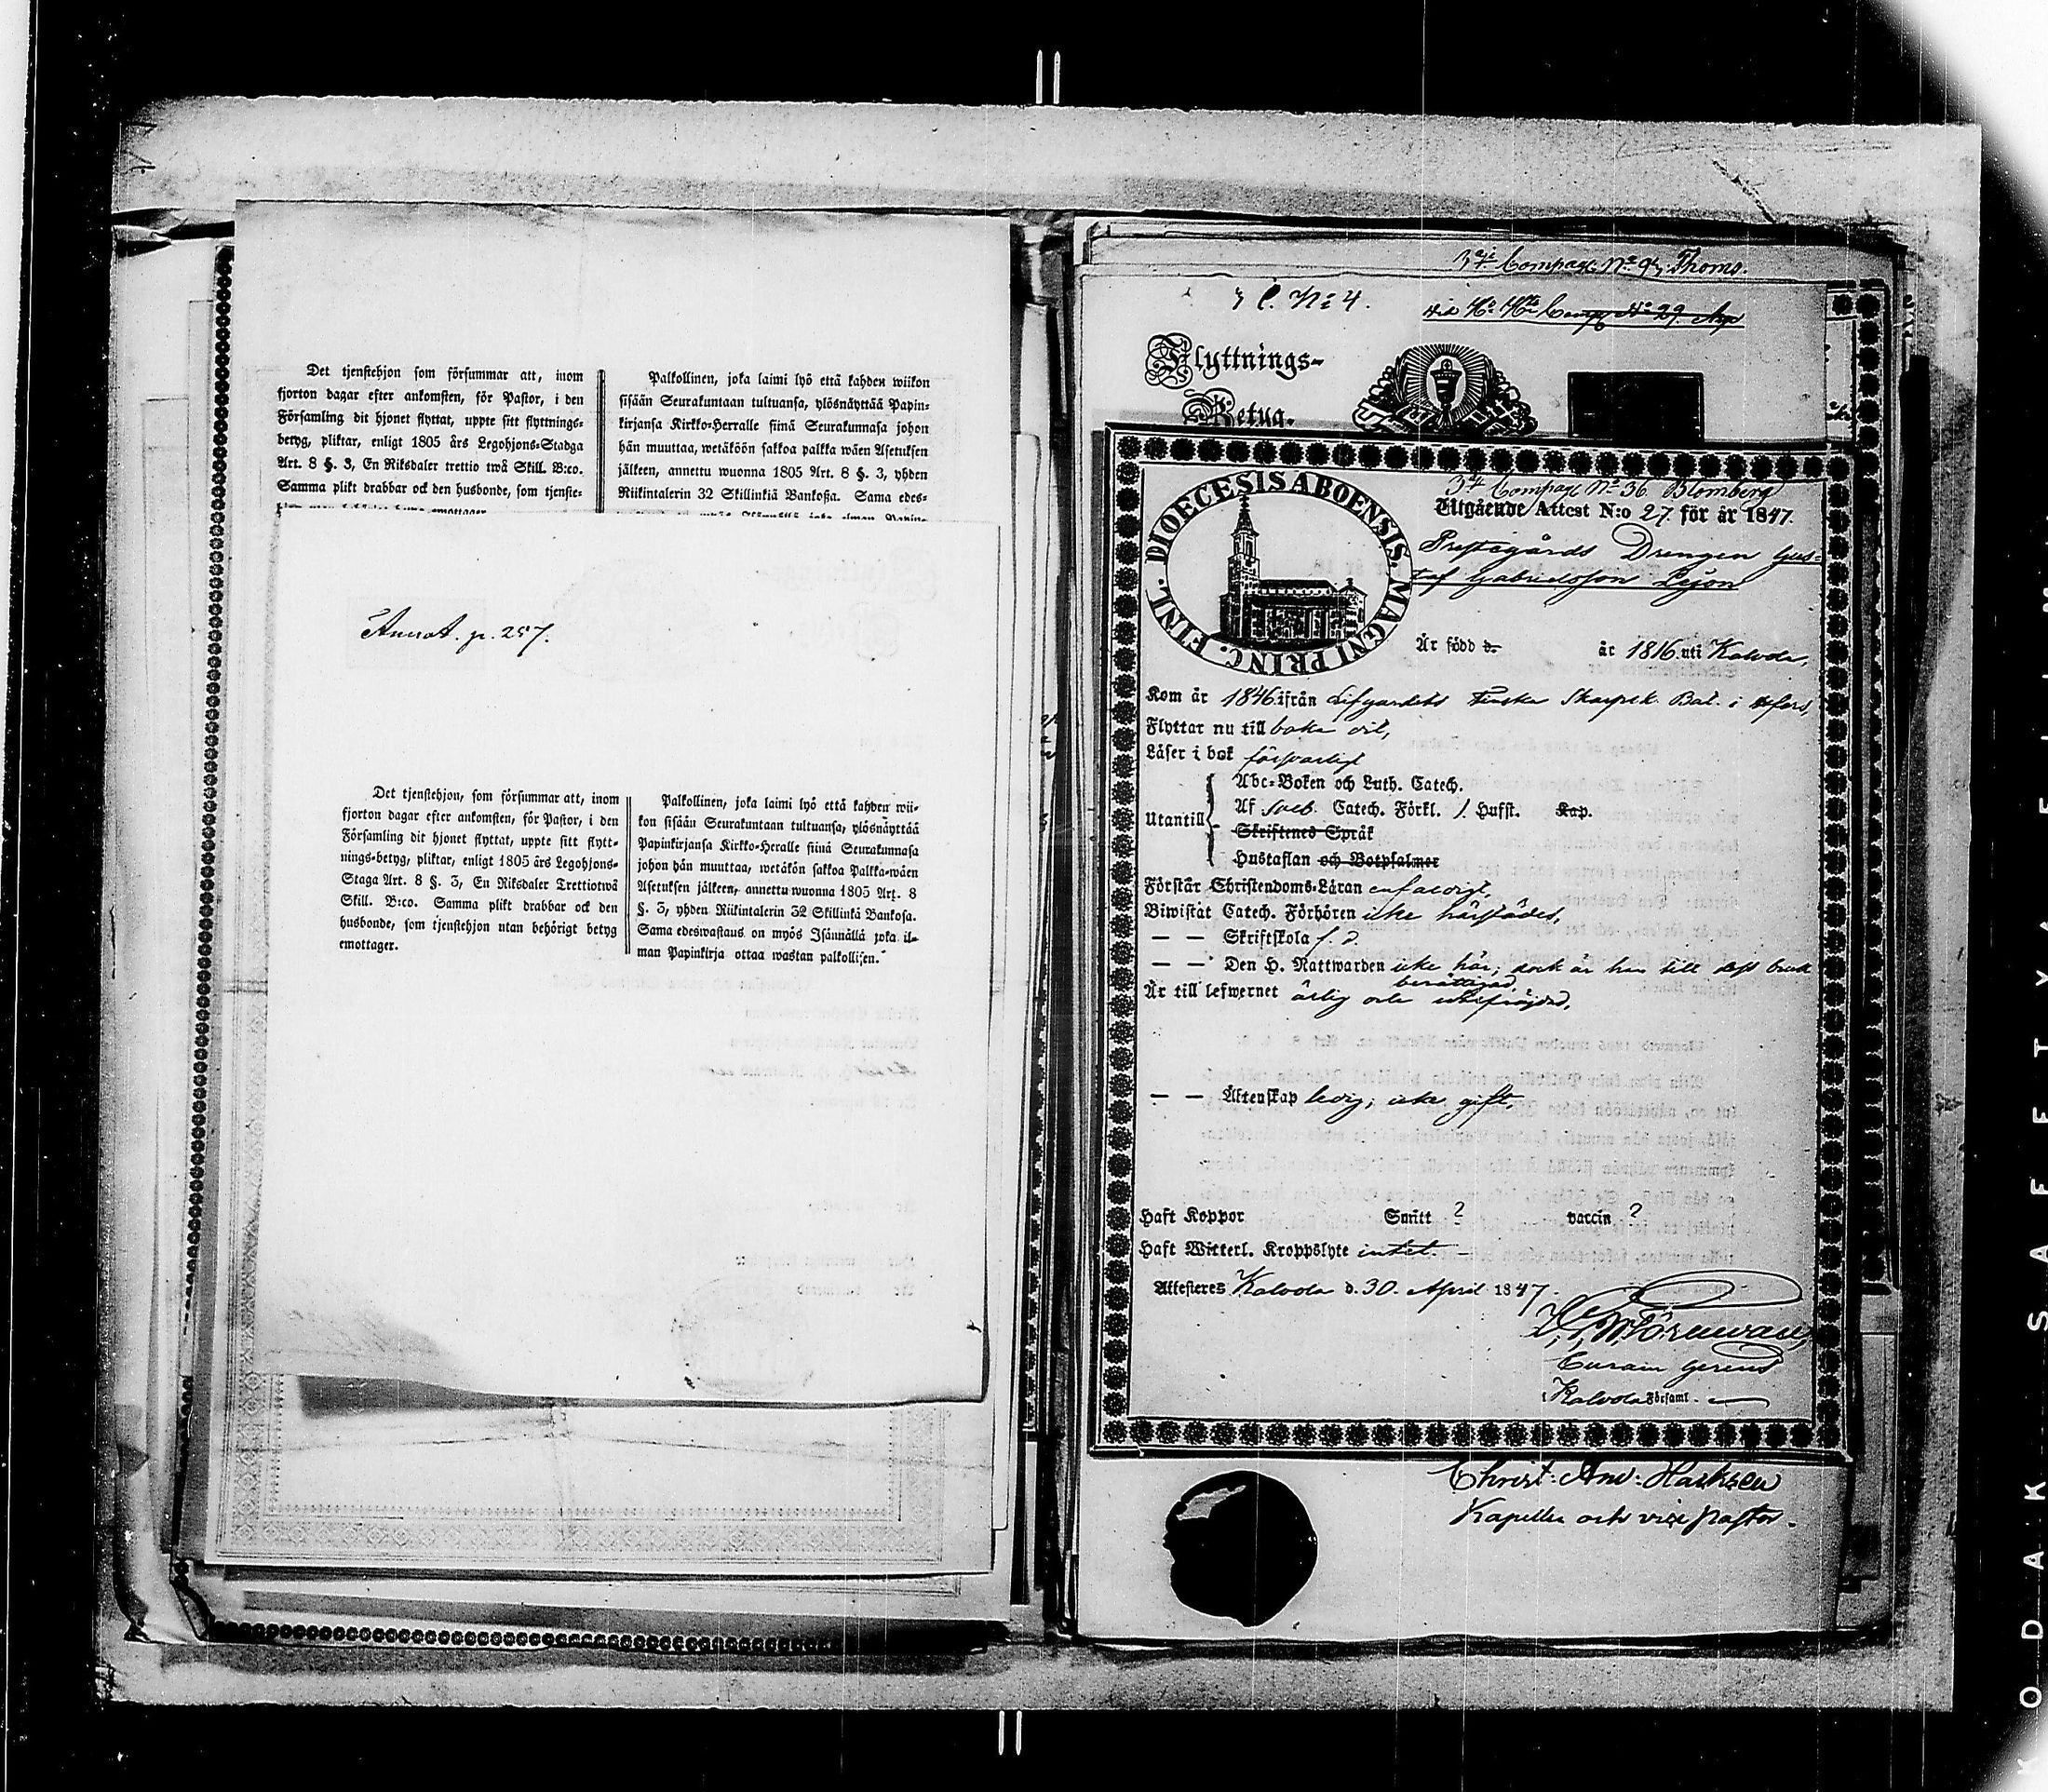 Det tjenstehjon som försummar att, inom
fjorton dagar efter ankomsten, för Pastor, i den
Församling dit hjonet flyttat, uppte sitt flyttnings-
betyg, pliktar, enligt 1805 års Legohjons-Stadga
Art. 8 §. 3, En Riksdaler trettio twå Skill. B:co.
Samma plikt drabbar ock den husbonde, som tjenste-
Palkollinen, joka laimi lyö että kahden wiikon
sisään Seurakuntaan tultuansa, ylösnäyttää Papin-
kirjansa Kirkko-Herralle siinä Seurakunnasa johon
hän muuttaa, wetäköön sakkoa palkka wäen Asetuksen
jälkeen, annettu wuonna 1805 Art. 8 §. 3, yhden
Riikintalerin 32 Skillinkiä Bankoßa. Sama edes-
Annot. p. 257.
Det tjenstehjon, som försummar att, inom
fjorton dagar efter ankomsten, för Pastor, i den
Församling dit hjonet flyttat, uppte sitt flytt-
nings-betyg, pliktar, enligt 1805 års Legohjons-
Staga Art. 8 §. 3, En Riksdaler Trettiotwå
Skill. B:co. Samma plikt drabbar ock den
husbonde, som tjenstehjon utan behörigt betyg
emottager.
Palkollinen, joka laimi lyö että kahden wii-
kon sisään Seurakuntaan tultuansa, ylösnäyttää
Papinkirjansa Kirkko-Heralle siinä Seurakunnasa
johon hän muuttaa, wetäkön sakkoa Palkka-wäen
Asetuksen jälkeen, annettu wuonna 1805 Art. 8
§. 3, yhden Riikintalerin 32 Skillinkä Bankosa.
Sama edeswastaus on myös Isännällä joka il-
man Papinkirja ottaa wastan palkollisen.
3dje Compag. No 9, Thoms.
3 C. No 4.
Flyttnings-
Betyg.
DIOECESIS ABOENSIS. MAGNI PRINC. FINL.
3dje Compag No 36 Blomberg
Utgående Attest N:o 27. för år 1847.
Prestagårds Drengen Gus-
taf Gabrielsson Lejon
Är född d. år 1816. uti Kalvola,
Kom år 1846. ifrån Lifgardets Finska Skarpsk. Bat. i Hfors,
Flyttar nu till baka dit,
Läser i bok försvarligt
Utantill
Abc-Boken och Luth. Catech.
Af Sveb. Catech. Förkl. 1. Hufst. Kap.
Skriftenes Språk
Hustaflan och Botpsalmer
Förstår Christendoms-Läran enfaldigt,
Biwistat Catech. Förhören icke härstädes,
— — Skriftskola f. d.
— — Den H. Nattwarden icke här; dock är han till dess bruk
berättigad,
Är till lefwernet ärlig och oberöjd,
— — Äktenskap ledig; icke gift,
Haft Koppor Smitt ? vaccin ?
Haft Witterl. Kroppslyte intet. –
Attesteres Kalvola d. 30. April 1847.
Curam Gerens
i Kalvola Församl.
Christ. And. Harksen
Kapellan och vice pastor.
KODAK SAFETY